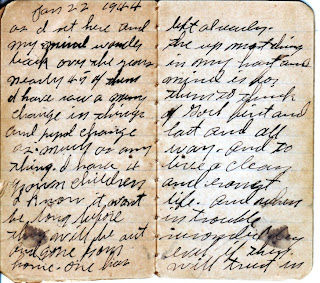 Jan 22 1944
as I set here and
my mind wonder
back over the years
nearly 45 of them
I have saw a many
change in things
and peopl change
as much as any
thing. I have 4
grown children
I know it wont
be long before
they will be out
and gone from
home. one has
left already.
the up most thing
in my heart and
mind is for
them to think
of God first and
last and all
way. and to
live a clean
and honest
life. and when
in trouble
will trust in